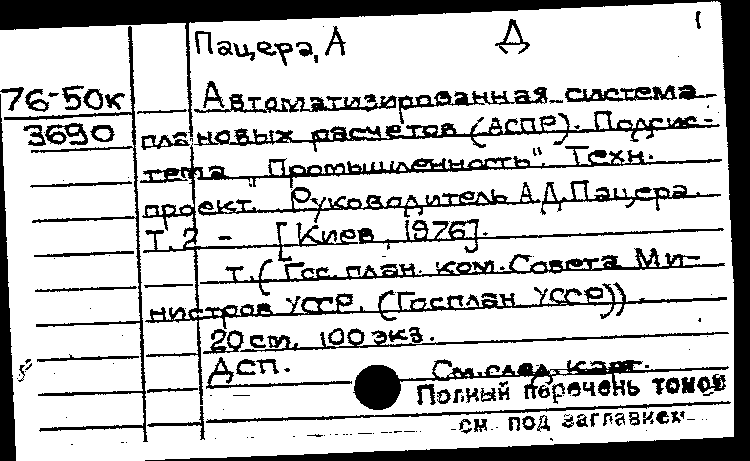 1
Пацера, А Д
76-50к Автоматизированная система
3690 плановых расчетов (АСПР). Подсис-
тема „Промышленность“. Техн.
проект. Руководитель А.Д.Пацера.
Т. 2 - [Киев, 1976].
т. (Гос. план. ком. Совета Ми-
нистров УССР. (Госплан УССР)).
20 см. 100 экз.
ДСП. См. след. карт.
Полный перечень томов
см. под заглавием